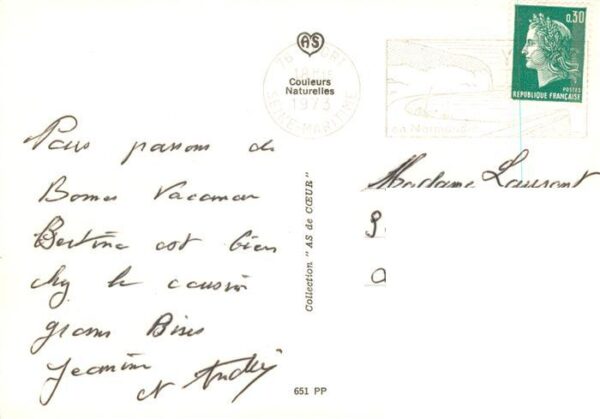 AS
Couleurs
Naturelles
1973
SEINE-MARITIME
0,30
POSTES
REPUBLIQUE FRANÇAISE
passons de
Bonnes Vacances
est bien
le cousin
gros Bises
Jeanine
et André
Collection "AS de CŒUR"
651 PP
Madame Laurent